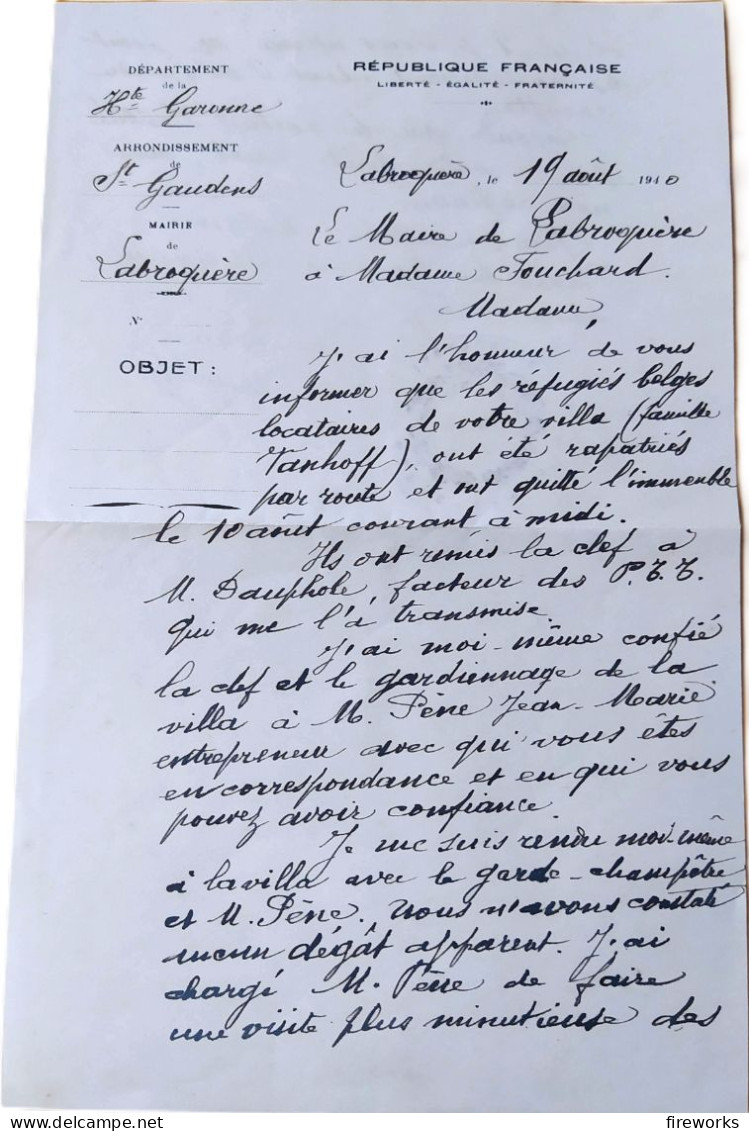 DÉPARTEMENT
de la
Hte Garonne
ARRONDISSEMENT
de
St Gaudens
MAIRIE
de
Labroquère
N°
OBJET :
RÉPUBLIQUE FRANÇAISE
LIBERTÉ - ÉGALITÉ - FRATERNITÉ
Labroquère, le 19 août 1940
Le Maire de Labroquère
à Madame Fouchard.
Madame,
J'ai l'honneur de vous
informer que les réfugiés belges
locataires de votre villa (famille
Vanhoff), ont été rapatriés
par route et ont quitté l'immeuble
le 10 août courant à midi.
Ils ont remis la clef à
M. Dauphole, facteur des P.T.T.
qui me l'a transmise.
J'ai moi-même confié
la clef et le gardiennage de la
villa à M. Pène Jean-Marie
entrepreneur avec qui vous êtes
en correspondance et en qui vous
pouvez avoir confiance.
Je me suis rendu moi-même
à la villa avec le garde-champêtre
et M. Pène. Nous n'avons constaté
aucun dégât apparent. J'ai
chargé M. Pène de faire
une visite plus minutieuse des
fireworks